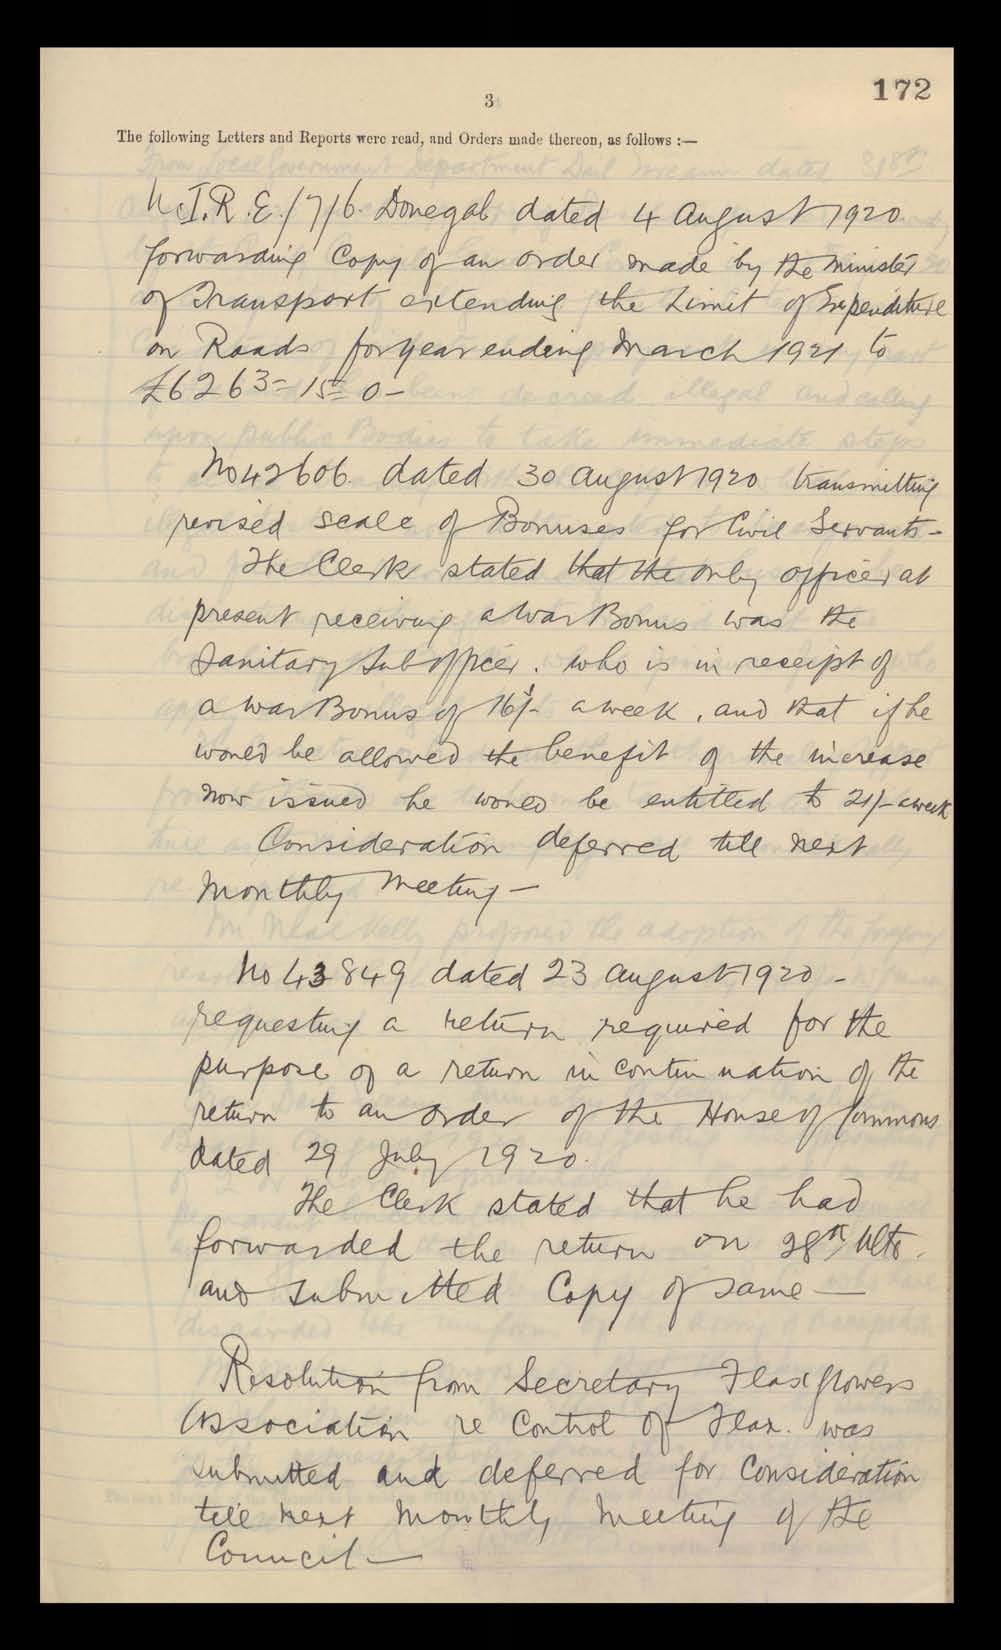 172
3
The following Letters and Reports were read, and Orders made thereon, as follows :—
No I.R.E./7/6. Donegal dated 4 August 1920.
forwarding Copy of an order made by the Minister
of Transport extending the Limit of Expenditure
on Roads for year ending March 1921 to
£6263=15=0-
No 42606. dated 30 August 1920 transmitting
revised scale of Bonuses for Civil Servants-
The Clerk stated that the only officer at
present receiving a War Bonus was the
Sanitary Sub officer. who is in receipt of
a War Bonus of 16/- a week, and that if he
would be allowed the benefit of the increase
now issued he would be entitled to 21/- a week
Consideration deferred till next
Monthly Meeting—
No 43849 dated 23 August 1920 -
requesting a return required for the
purpose of a return in continuation of the
return to an order of the House of Commons
dated 29 July 1920.
The Clerk stated that he had
forwarded the return on 28th Ulto.
and submitted Copy of same—
Resolution from Secretary Flax growers
Association re Control of Flax. was
submitted and deferred for Consideration
till next Monthly Meeting of the
Council—